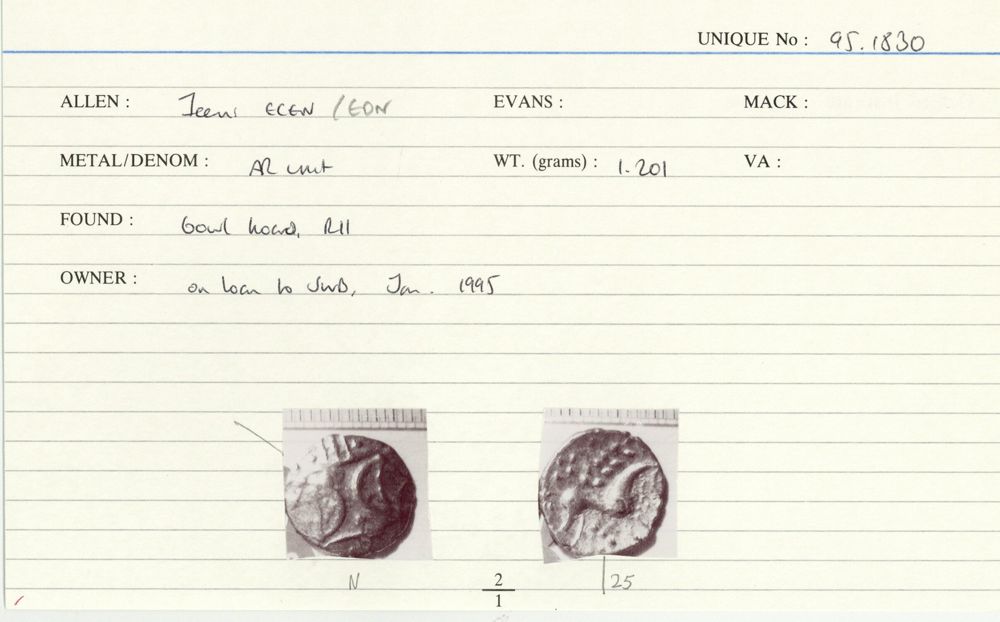 UNIQUE No : 95.1830
ALLEN : Iceni ECEN / EDN EVANS : MACK :
METAL/DENOM : AR unit WT. (grams) : 1.201 VA :
FOUND : bowl hoard, RH
OWNER : on loan to JWB, Jan. 1995
N 2/1 25